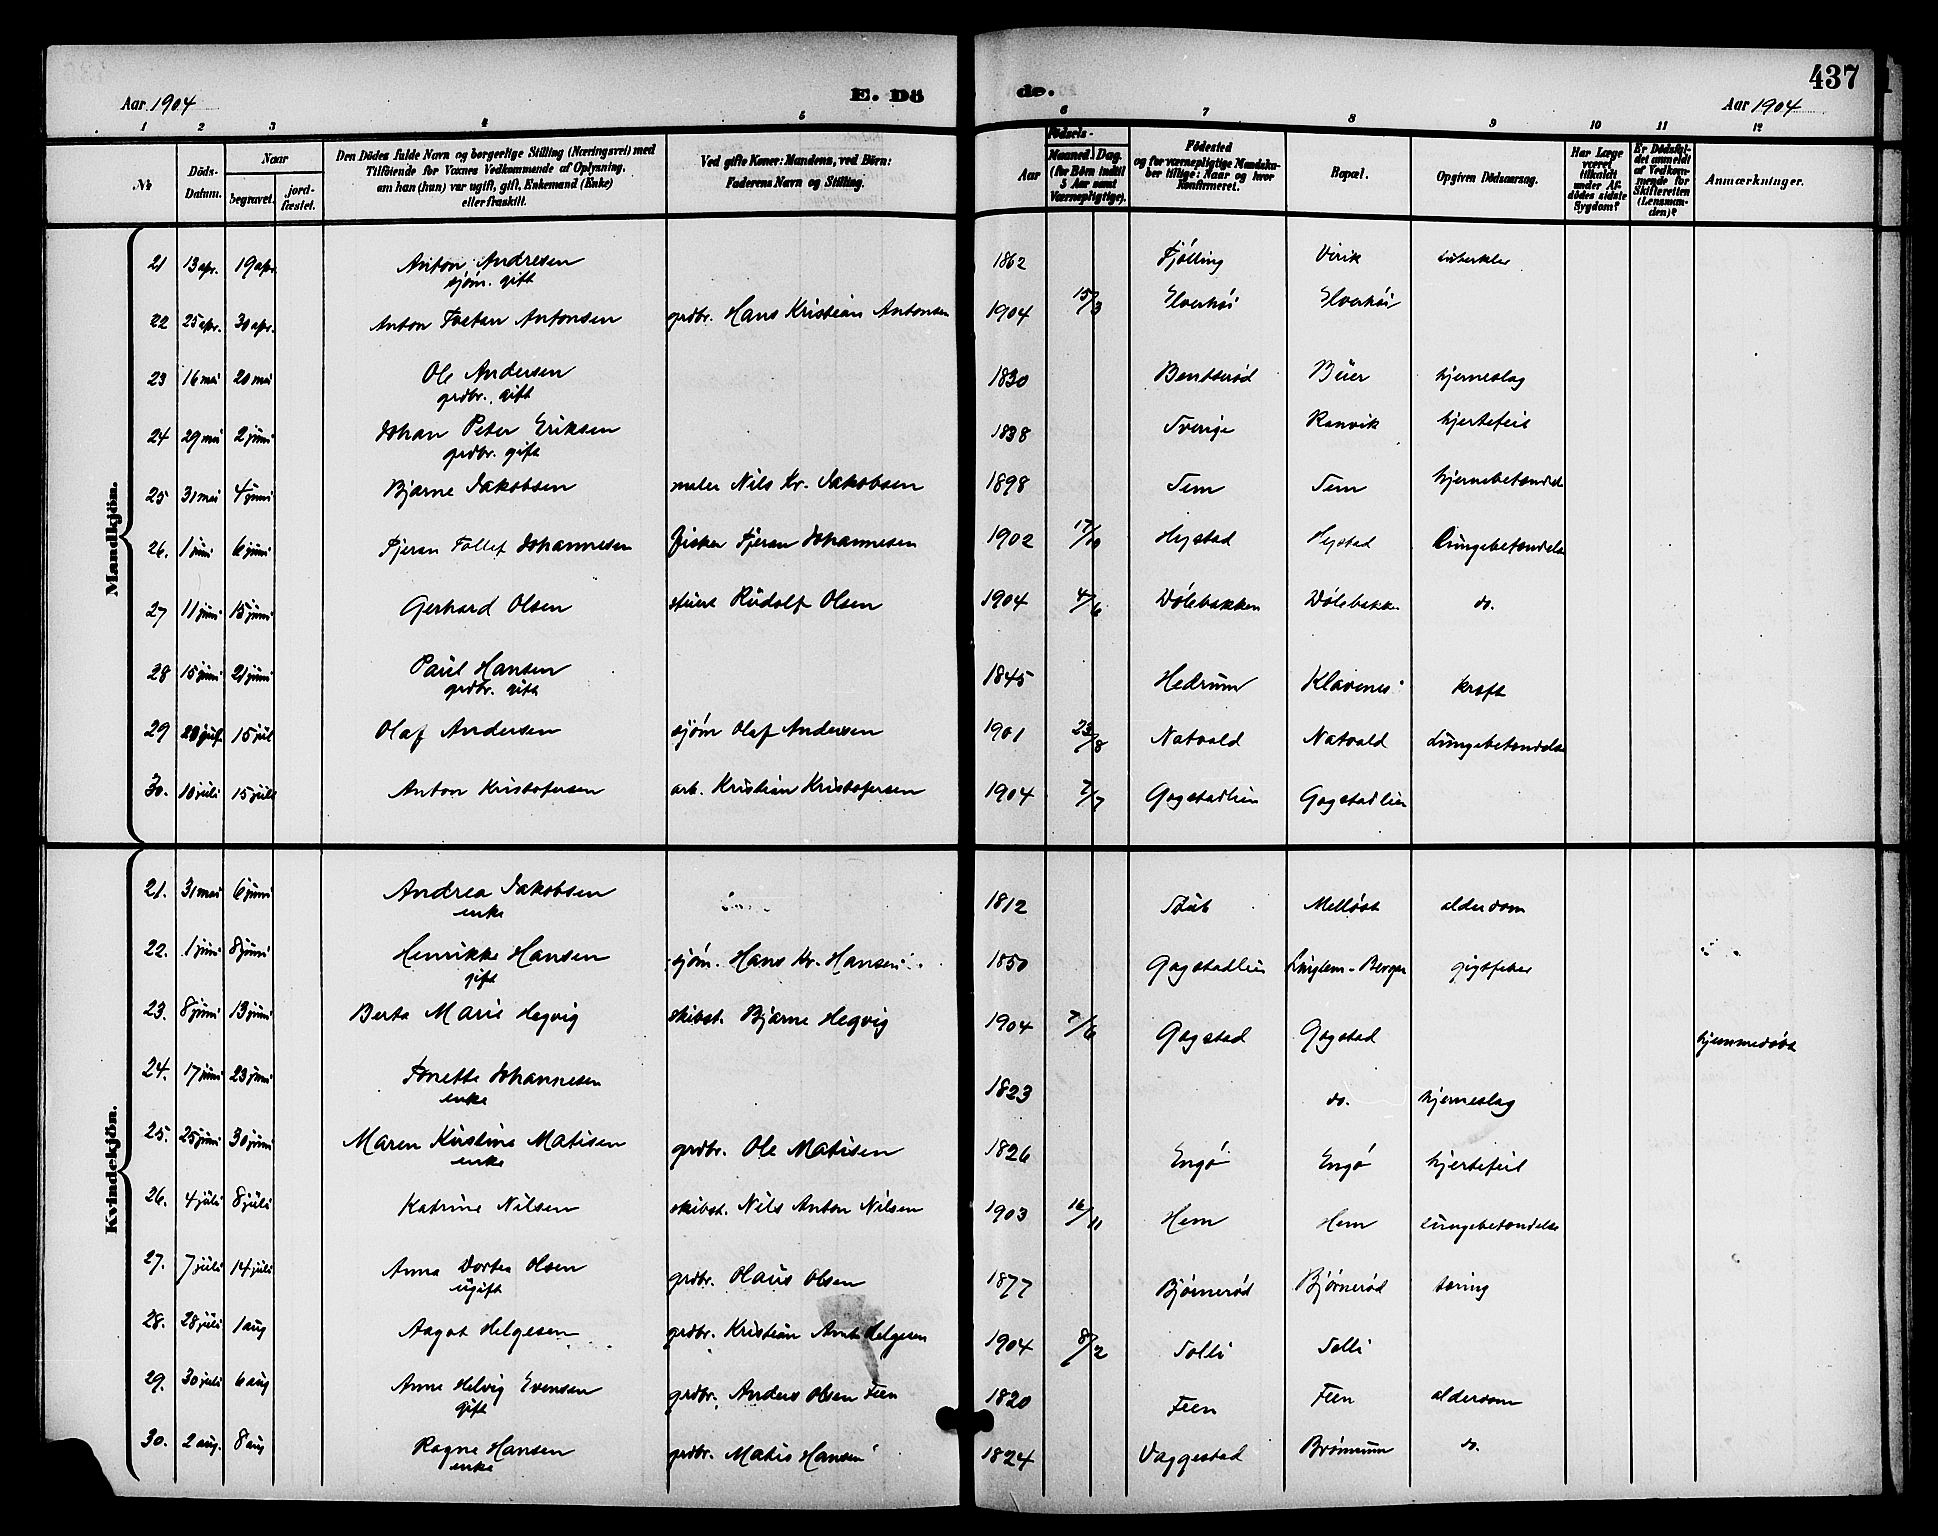 437
Aar 1904 E. Dö
de. Aar 1904
1 2 3 4 5 6 7 8 9 10 11 12
No
Döds-Datum.
Naar
begravet.
jord-fæstet.
Den Dödes fulde Navn og borgerlige Stilling (Næringsvei) med
Tilföiende for Voxnes Vedkommende af Oplysning,
om han (hun) var ugift, gift, Enkemand (Enke)
eller fraskilt.
Ved gifte Koner: Mandens, ved Börn:
Faderens Navn og Stilling.
Födsels-
Aar
Maaned. Dag.
(for Börn indtil
5 Aar samt
Værnepligtige).
Födested
og for værnepligtige Mandska-
ber tillige: Naar og hvor
konfirmeret.
Bopæl.
Opgiven Dödsaarsag.
Har Læge
været
tilkaldt
under Af-
dödes sidste
Sygdom?
Er Dödsfal-
det anmeldt
af Vedkom-
mende for
Skifteretten
(Lensman-
den)?
Anmærkninger.
Mandkjön.
21 13 apr. 19 apr. Anton Andresen 1862 Tjølling Virik tuberkler
sjøm. gift
22 25 apr. 30 apr. Anton Antonsen grdbr. Hans Kristian Antonsen 1904 15/3 Elverhøi Elverhøi
23 16 mai 20 mai Ole Andersen 1830 Bentserød Büer hjerneslag
grdbr. gift
24 29 mai 2 juni Johan Peter Eriksen 1838 Sverige Ranvik hjertefeil
grdbr. gift
25 31 mai 4 juni Bjarne Jakobsen maler Nils Kr. Jakobsen 1898 Tem Tem hjernebetændels
26. 1 juni 6 juni Fjeran Tollef Johannesen fisker Fjeran Johannesen 1902 17/10 Hystad Hystad Lungebetændelse
27 11 juni 15 juni Gerhard Olsen stuert Rudolf Olsen 1904 4/6 Dölebakken Dölebakke do.
28 15 juni 21 juni Paul Hansen 1845 Hedrum Klavenes kræft
grdbr. gift
29 15 jul Olaf Andersen sjøm Olaf Andersen 1901 23/8 Natvald Natvald Lungebetændelse
30. 10 juli 15 juli Anton Kristofersen arb. Kristian Kristofersen 1904 7/7 Gogstadlien Gogstadlien
Kvindekjön.
21. 31 mai 6 juni Andrea Jakobsen 1812 Stub Melløst alderdom
enke
22. 1 juni 8 juni Henrikke Hansen sjøm. Hans Kr. Hansen 1850 Gogstadlien gigtfeber
gift
23. 8 juni 13 juni Berta Marie Hegvig skibst. Bjarne Hegvig 1904 7/6 Gogstad Gogstad hjemmedøbt
24. 17 juni 23 juni Tonette Johannesen 1823 do. hjerneslag
enke
25. 25 juni 30 juni Maren Kirstine Matisen grdbr. Ole Matisen 1826 Engø Engø hjertefeil
enke
26. 4 juli 8 juli Katrine Nilsen skibst. Nils Anton Nilsen 1903 16/11 Hem Hem lungebetændelse
27. 7 juli 14 juli Anna Dortea Olsen grdbr. Olaus Olsen 1877 Bjørnerød Bjørnerød tæring
ugift
28. 28 juli 1 aug Aagot Helgesen grdbr. Kristian Ant. Helgesen 1904 8/2 Solli Solli
29. 30 juli 6 aug Anne Helvig Evensen grdbr. Anders Olsen Feen 1820 Feen Feen alderdom
gift
30. 2 aug. 8 aug Ragne Hansen grdbr. Matis Hansen 1824 Vaggestad Brønnum do.
enke